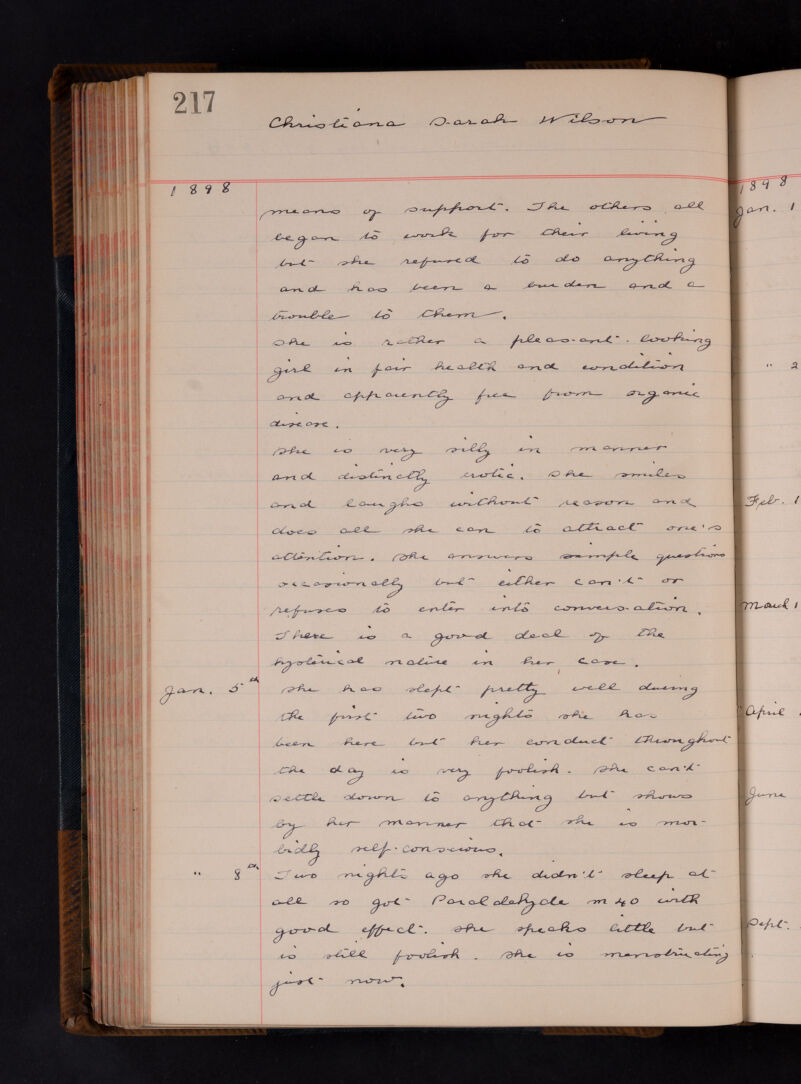 217
Christiana Sarah Wilson
1898
means of support. The others all
began to work for their living
but she refused to do anything
and has been a burden and a
trouble to them.
She is rather a pleasant-looking
girl in fair health and condition
and apparently free from organic
disease.
She is very silly in manner
and distinctly erotic. She smiles
and laughs without reason and
does all she can to attract one's
attention. She answers simple questions
occasionally but either can't or
refuses to enter into conversation.
There is a good deal of the
hysterical nature in her case.
Jan. 5th She has slept pretty well during
the first two nights she has
been here but her conduct throughout
the day is very foolish. She can't
settle down to anything but shows
by her manner that she is mor-
bidly self-conscious.
" 8th Two nights ago she didn't sleep at
all so got Paraldehyde m 40 with
good effect. She speaks little but
is still foolish. She is menstruating
just now.
1898
Jan. 1
" 2
Feb. 1
March 1
April
June
Sept.